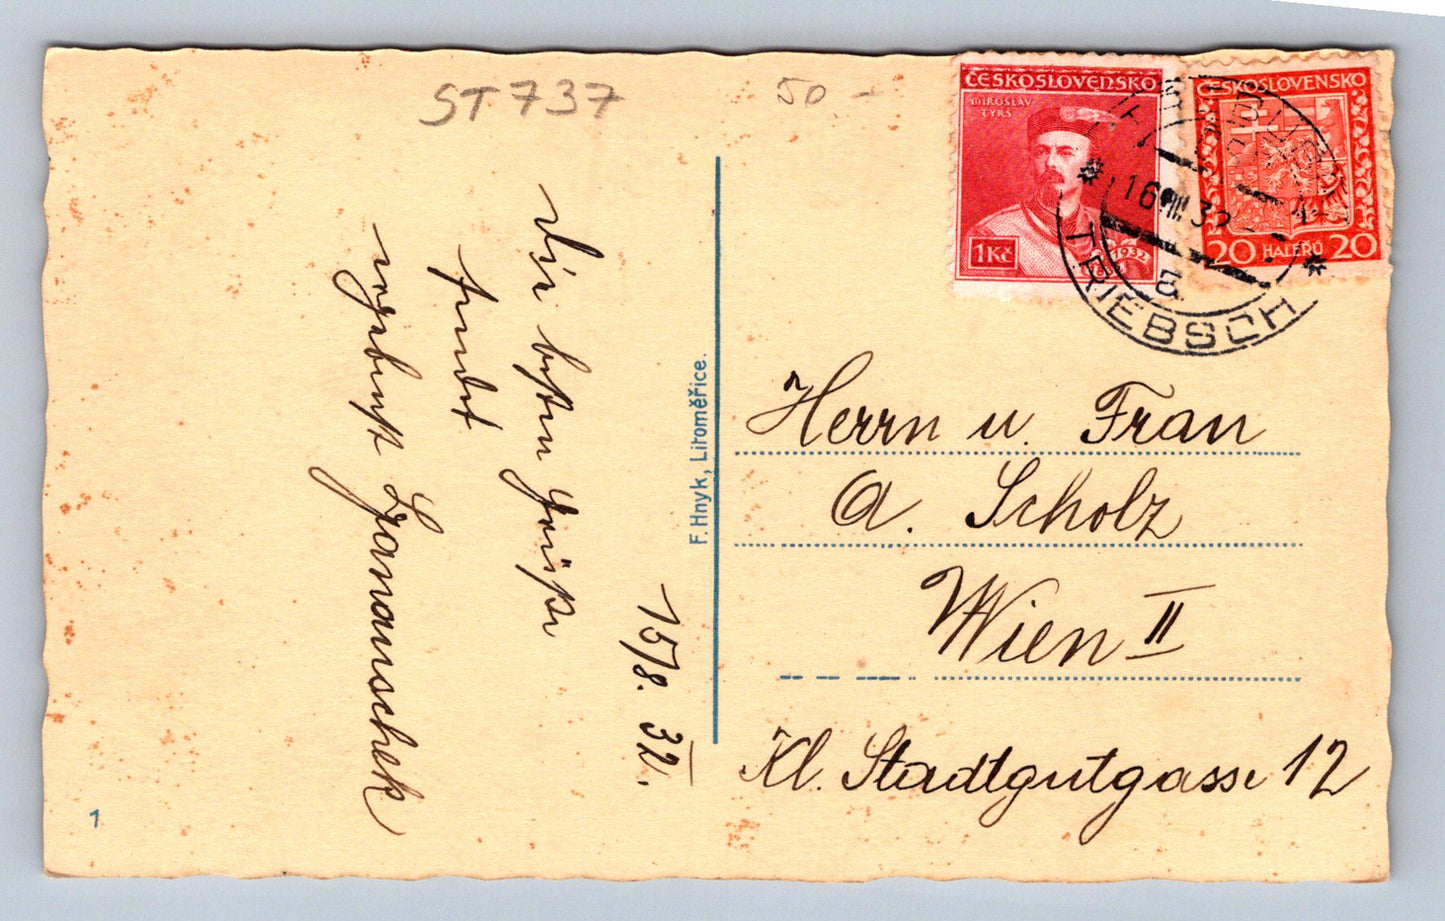 ST 737
50 -
ČESKOSLOVENSKO
MIROSLAV
TYRŠ
1Kč
1932
ČESKOSLOVENSKO
20 HALÉŘŮ 20
16.VIII.32
TRIEBSCH
15/8. 32.
Die besten Grüße
sendet
ergebenst
F. Hnyk, Litoměřice.
Herrn u. Frau
A. Scholz
Wien II
Kl. Stadtgutgasse 12
1